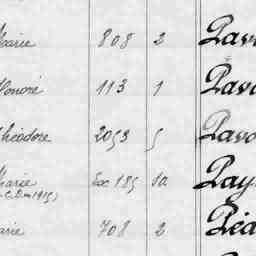 Marie 808 2 Pav
Honoré 113 1 Pav
Théodore 2093 5 Pavo
Marie Soc 185 10 Pay
(C. Dm 1915)
Marie 708 2 Péd